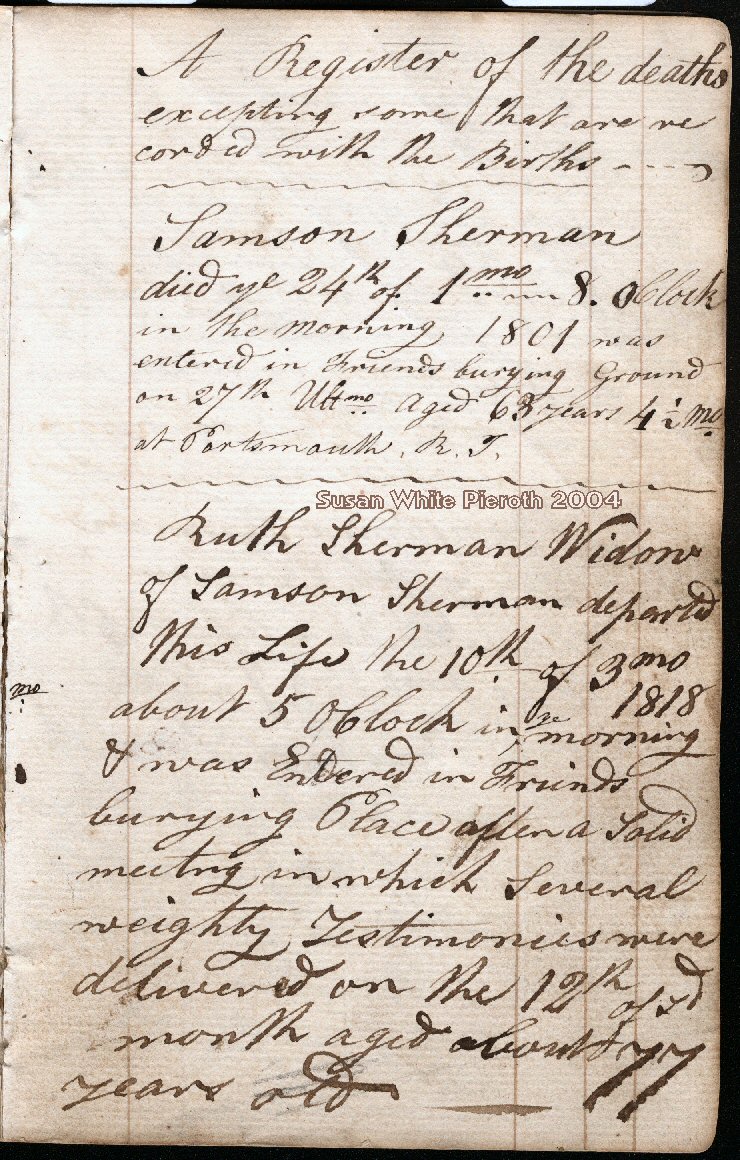 A Register of the deaths
excepting some that are re
corded with the Births
Samson Sherman
died ye 24th of 1mo 8. oClock
in the morning 1801 was
entered in Friends burying Ground
on 27th Ultmo Aged 63 years 4½ mo
at Portsmouth, R. I.
Susan White Pieroth 2004
Ruth Sherman Widow
of Samson Sherman departed
this Life the 10th of 3mo
1818
about 5 OClock in ye morning
mo
& was Entered in Friends
burying Place after a Solid
meetng in which Several
weighty Testimonies were
delivered on the 12th of sd
month aged about 77
years old